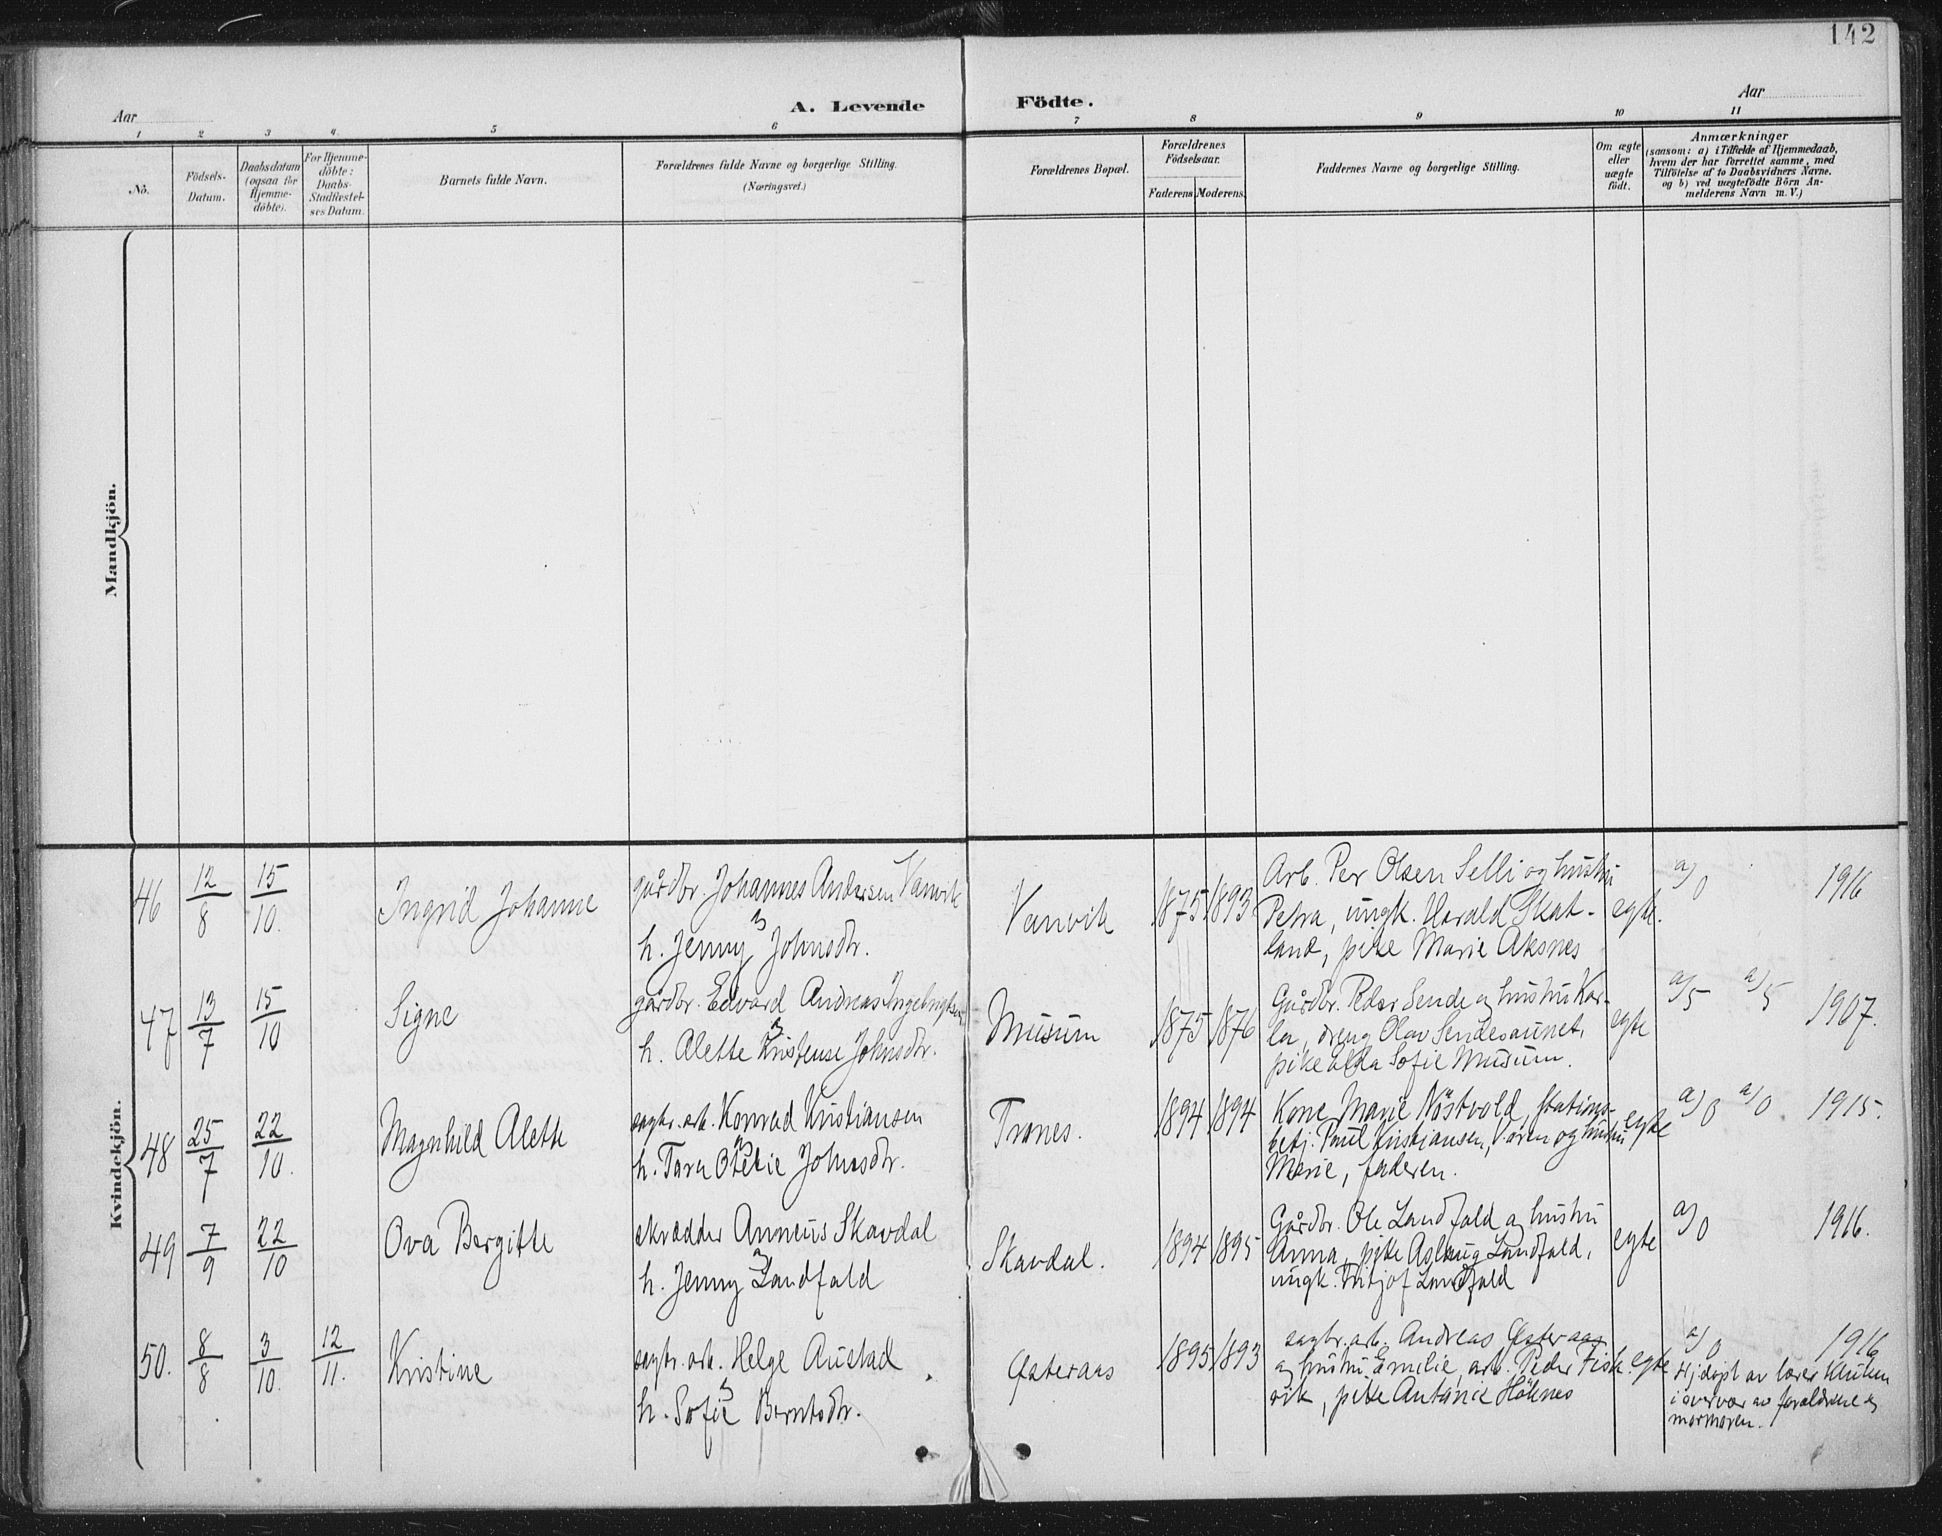 142
Aar
A. Levende Födte.
Aar
1 2 3 4 5 6 7 8 9 10 11
No.
Födsels-
Datum.
Daabsdatum
(ogsaa for
Hjemme-
döbte).
For Hjemme-
döbte:
Daabs-
Stadfæstel-
ses Datum.
Barnets fulde Navn.
Forældrenes fulde Navne og borgerlige Stilling.
(Næringsvei.)
Forældrenes Bopæl.
Forældrenes
Födselsaar.
Faderens. Moderens.
Faddernes Navne og borgerlige Stilling.
Om ægte
eller
uægte
födt.
Anmærkninger
(saasom: a) i Tilfælde af Hjemmedaab,
hvem der har forrettet samme, med
Tilföielse af to Daabsvidners Navne.
og b) ved uægtefödte Börn An-
melderens Navn m. V.)
Mandkjön.
Kvindekjön.
46
12/8
15/10.
Ingrid Johanne
gårdbr. Johannes Andersen Vanvik
h. Jenny Johnsdtr.
Vanvik
1875 1893
Arb. Per Olsen Selli og hustru
Petra, ungk. Harald Skat-
land, pike Marie Aksnes
egte.
a/0
1916
47
13/7
15/10
Signe
gårdbr. Edvard Andreas Ingebrigtsen
h. Alette Kristense Johnsdtr.
Musum
1875 1876
Gårdbr. Peder Sende og hustru Kar-
la, dreng Olav Sendesaunet,
pike Alda Sofie Musum.
egte
a/5 a/5
1907.
48
25/7
22/10.
Magnhild Alette
sagbr. arb. Konrad Kristiansen
h. Tara Otelie Johnsdtr.
Tranes.
1894 1894
Kone Marie Nöstvold, stations-
betj. Paul Kristiansen, Vören og hustru
Marie, faderen.
egte
a/0 a/0
1915.
49
7/9
22/10
Ova Bergitte
skrædder Anneus Skavdal
h. Jenny Landfald
Skavdal.
1894 1895
Gårdbr. Ole Landfald og hustru
Anna, pike Aslaug Landfald,
ungk. Fritjof Landfald
egte
a/0
1916.
50.
8/8
3/10.
12/11.
Kristine
sagbr. arb. Helge Austad
h. Sofie Berntsdtr.
Østeraas
1895 1893
sagbr. arb. Andreas Østeraas
og hustru Emilie, arb. Peder Fisk-
vik, pike Antanie Höknes
egte
a/0
1916
Hj.döpt av lærer
i overvær av forældrene og
mormoren.